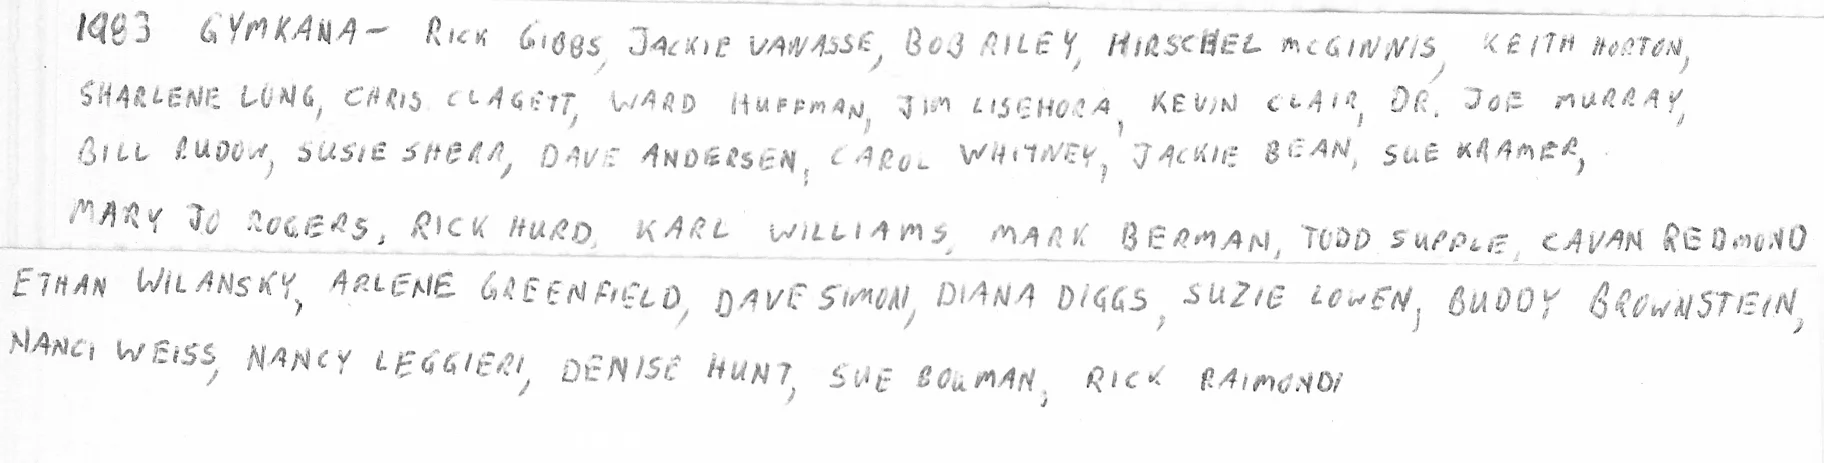 1983 GYMKANA- RICK GIBBS, JACKIE VANASSE, BOB RILEY, HIRSCHEL McGINNIS, KEITH HORTON,
SHARLENE LONG, CHRIS CLAGETT, WARD HUFFMAN, JIM LISEHORA, KEVIN CLAIR, DR. JOE MURRAY,
BILL RUDOW, SUSIE SHERR, DAVE ANDERSEN, CAROL WHITNEY, JACKIE BEAN, SUE KRAMER,
MARY JO ROGERS, RICK HURD, KARL WILLIAMS, MARK BERMAN, TODD SUPPLE, CAVAN REDMOND
ETHAN WILANSKY, ARLENE GREENFIELD, DAVE SIMON, DIANA DIGGS, SUZIE LOWEN, BUDDY BROWNSTEIN,
NANCI WEISS, NANCY LEGGIERI, DENISE HUNT, SUE BOWMAN, RICK RAIMONDI